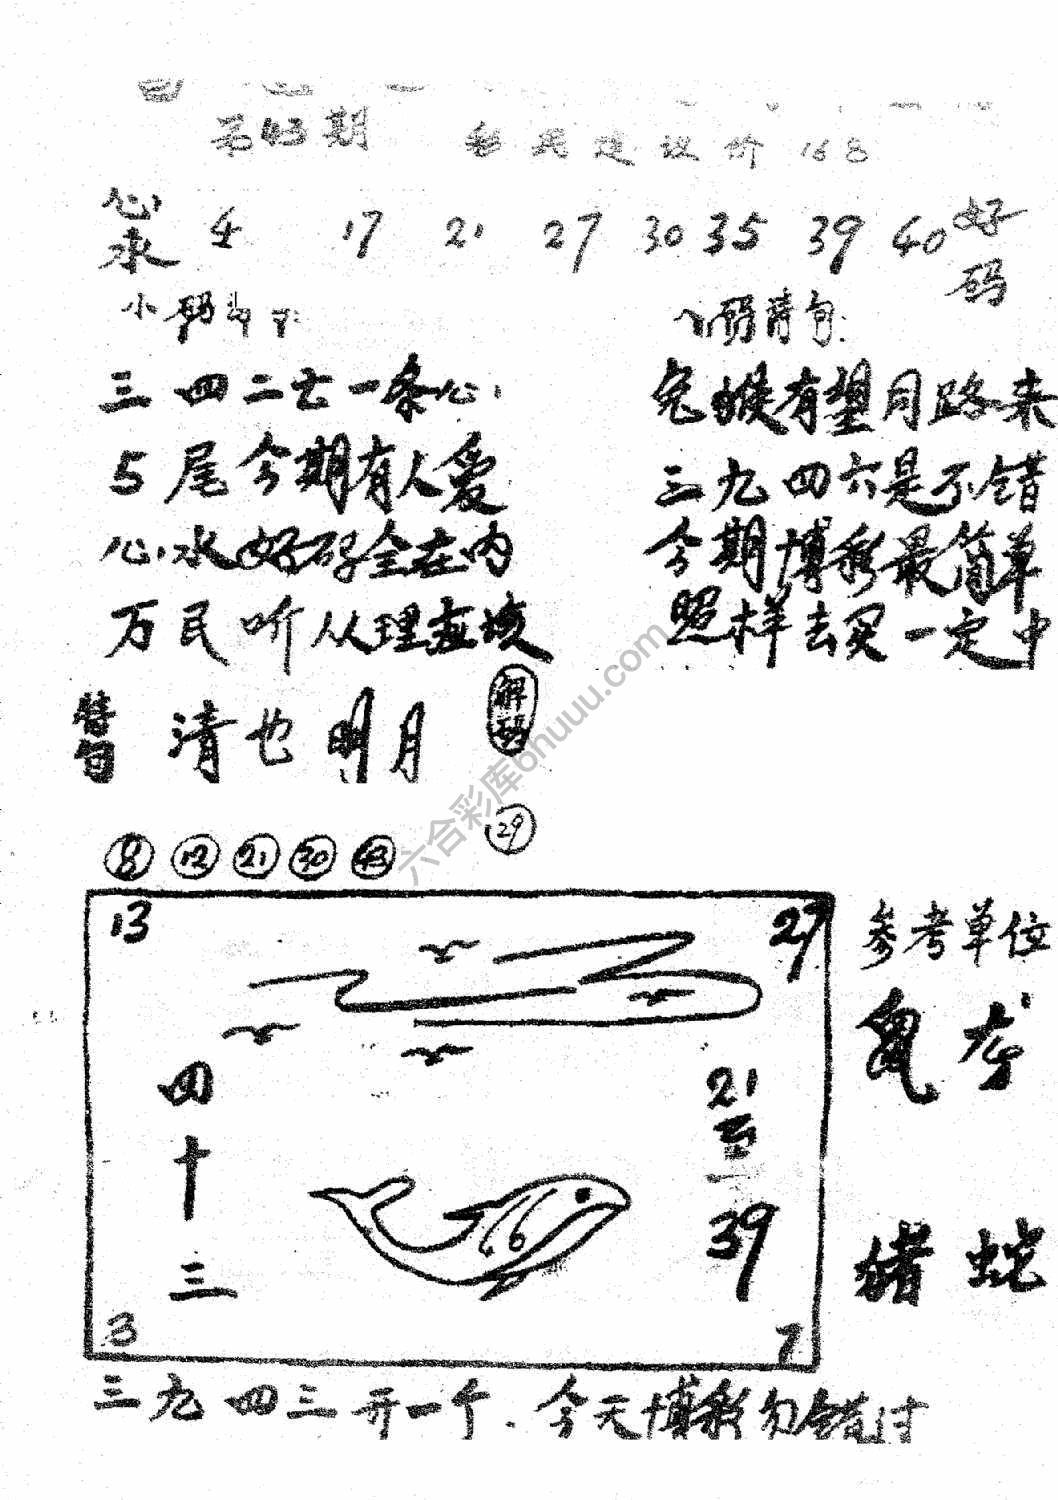 第43期 彩民建议价 168
心水 4 17 21 27 30 35 39 40 好码
三四二七一条心
5尾今期有人爱
心水好码全在内
万民听从理应该
兔猴有望月路来
三九四六是不错
今期博彩最简单
照样去买一定中
清也明月
解码
29
8 12 21 30 43
13 27
四十三
21
39
16
3 7
参考单位
兔
猪 蛇
三九四三开一个.今天博彩勿错过
六合彩库6huuu.com